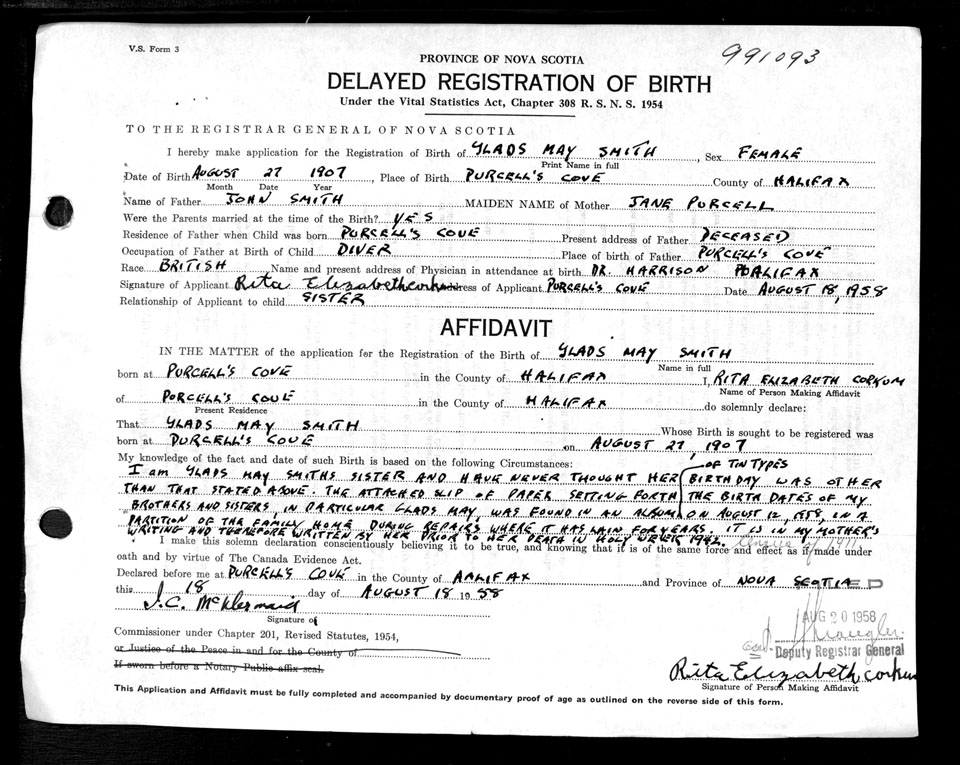 V.S. Form 3
991093
PROVINCE OF NOVA SCOTIA
DELAYED REGISTRATION OF BIRTH
Under the Vital Statistics Act, Chapter 308 R. S. N. S. 1954
TO THE REGISTRAR GENERAL OF NOVA SCOTIA
I hereby make application for the Registration of Birth of GLADS MAY SMITH, Sex FEMALE
Print Name in full
Date of Birth AUGUST 27 1907, Place of Birth PURCELL'S COVE County of HALIFAX
Month Date Year
Name of Father JOHN SMITH MAIDEN NAME of Mother JANE PURCELL
Were the Parents married at the time of the Birth? YES
Residence of Father when Child was born PURCELL'S COVE Present address of Father DECEASED
Occupation of Father at Birth of Child DIVER Place of birth of Father PURCELL'S COVE
Race BRITISH Name and present address of Physician in attendance at birth DR. HARRISON HALIFAX
Signature of Applicant Rita Elizabeth Corkum Address of Applicant PURCELL'S COVE Date AUGUST 18, 1958
Relationship of Applicant to child SISTER
AFFIDAVIT
IN THE MATTER of the application for the Registration of the Birth of GLADS MAY SMITH
Name in full
born at PURCELL'S COVE in the County of HALIFAX I, RITA ELIZABETH CORKUM
Name of Person Making Affidavit
of PORCELL'S COVE in the County of HALIFAX do solemnly declare:
Present Residence
That GLADS MAY SMITH Whose Birth is sought to be registered was
born at PURCELL'S COVE on AUGUST 27, 1907
My knowledge of the fact and date of such Birth is based on the following Circumstances: OF TINTYPES
I am GLADS MAY SMITHS SISTER AND HAVE NEVER THOUGHT HER BIRTHDAY WAS OTHER
THAN THAT STATED ABOVE. THE ATTACHED SLIP OF PAPER SETTING FORTH THE BIRTH DATES OF MY
BROTHERS AND SISTERS, IN PARTICULAR GLADS MAY, WAS FOUND IN AN ALBUM ON AUGUST 12, 1958, IN A
PARTITION OF THE FAMILY HOME DURING REPAIRS WHERE IT HAS LAIN FOR YEARS. IT IS IN MY MOTHER'S
WRITING AND THEREFORE WRITTEN BY HER PRIOR TO HER DEATH IN HOLY WEEK 1942.
I make this solemn declaration conscientiously believing it to be true, and knowing that it is of the same force and effect as if made under
oath and by virtue of The Canada Evidence Act.
Declared before me at PURCELL'S COVE in the County of HALIFAX and Province of NOVA SCOTIA
this 18 day of AUGUST 18 1958
Signature of
AUG 20 1958
Commissioner under Chapter 201, Revised Statutes, 1954,
or Justice of the Peace in and for the County of
If sworn before a Notary Public affix seal.
Deputy Registrar General
Rita Elizabeth Corkum
Signature of Person Making Affidavit
This Application and Affidavit must be fully completed and accompanied by documentary proof of age as outlined on the reverse side of this form.